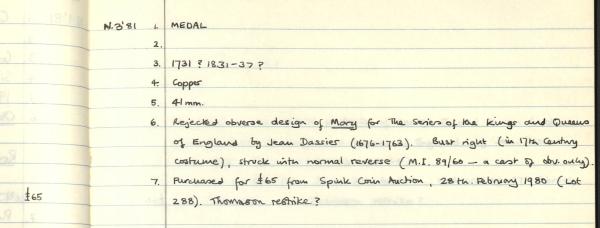 N.3'81 1. MEDAL
2.
3. 1731 ? 1831-37 ?
4. Copper
5. 41mm.
6. Rejected obverse design of Mary for The Series of the Kings and Queens
of England by Jean Dassier (1676-1763). Bust right (in 17th Century
costume), struck with normal reverse (M.I. 89/60 — a cast of obv. only).
7. Purchased for £65 from Spink Coin Auction, 28th. February 1980 (Lot
£65 288). Thomason restrike?